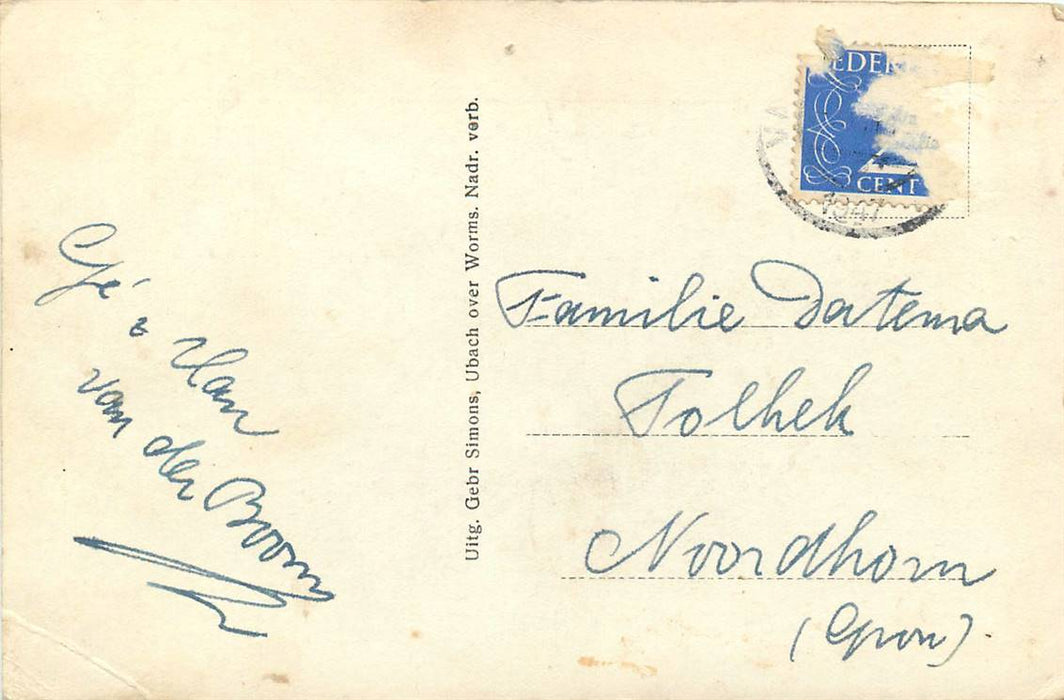 Gé &
Han
van der Boom
Uitg. Gebr Simons, Ubach over Worms. Nadr. verb.
EDER
4
CENT
VA
1947
Familie Datema
Tolhek
Noordhorn
(Gron).